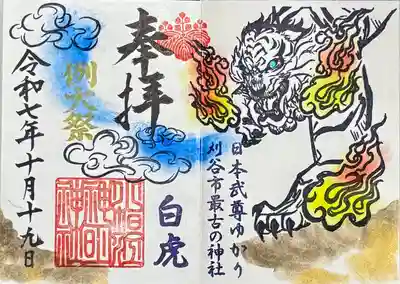 日本武尊ゆかり
刈谷市最古の神社
奉拝
白虎
小垣江
神明
神社
例大祭
令和七年十月十九日